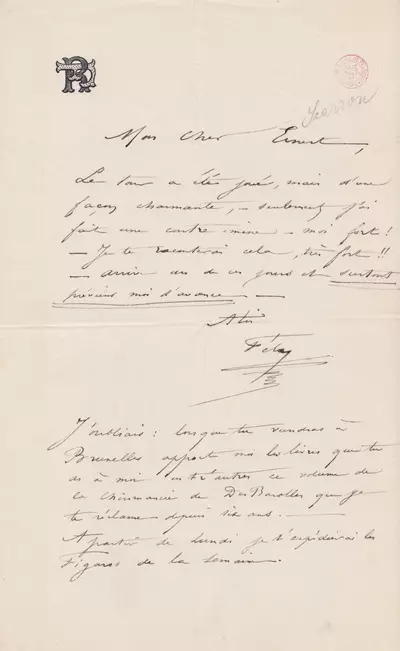 Mon cher Ernest,
Le tour a été joué, mais d'une
façon charmante, – seulement j'ai
fait une contre mine – moi fort!
– Je te raconterai cela, très fort!!
– arrive un de ces jours et surtout
préviens moi d'avance –
Féli
J'oubliais: lorsque tu viendras à
Bruxelles apporte moi les livres que tu
as à moi entr'autres ce volume de
la chiromancie de DesBarolles que je
te réclame depuis six ans. –
A partir de Lundi je t'expédierai les
Figaros de la semaine.